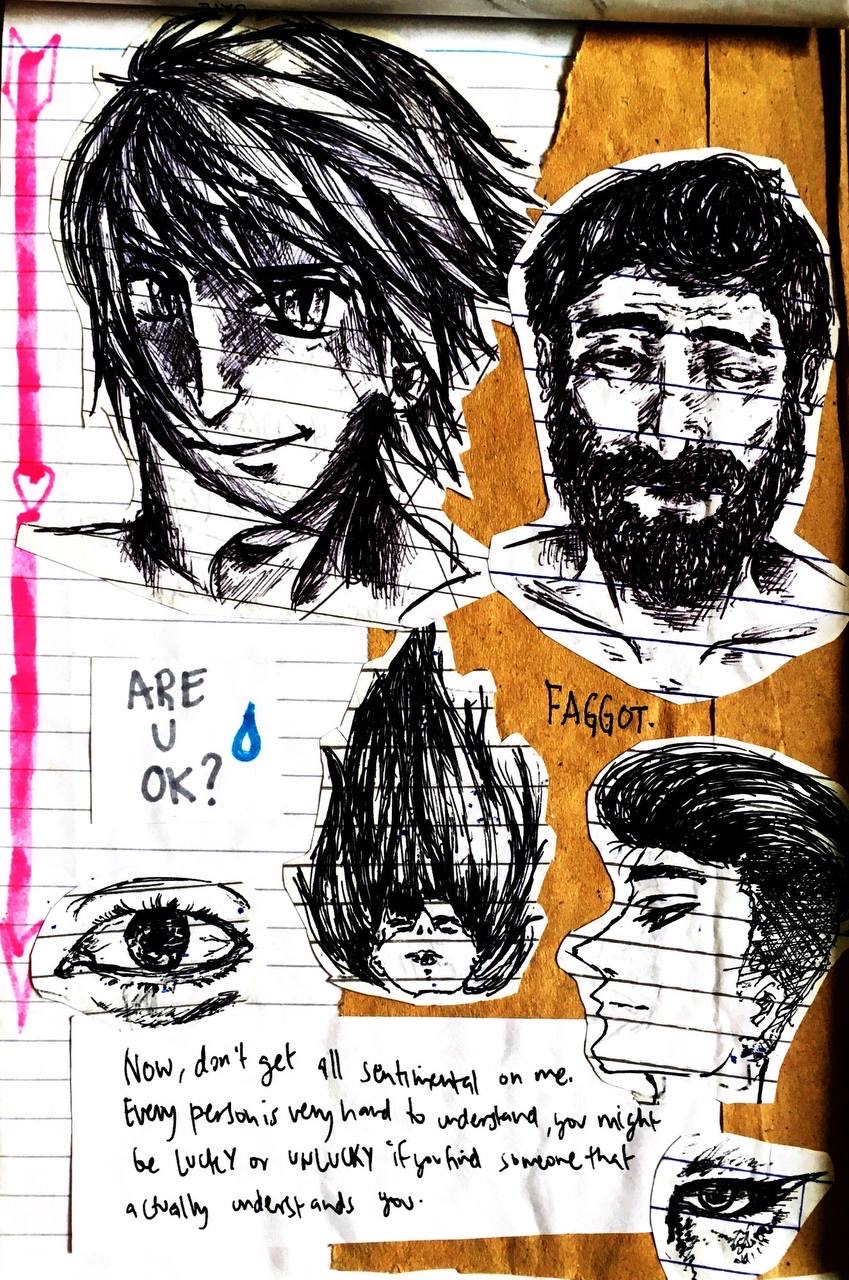 ARE
U
OK?
FAGGOT.
Now, don't get all sentimental on me.
Every person is very hard to understand, you might
be LUCKY or UNLUCKY if you find someone that
actually understands you.